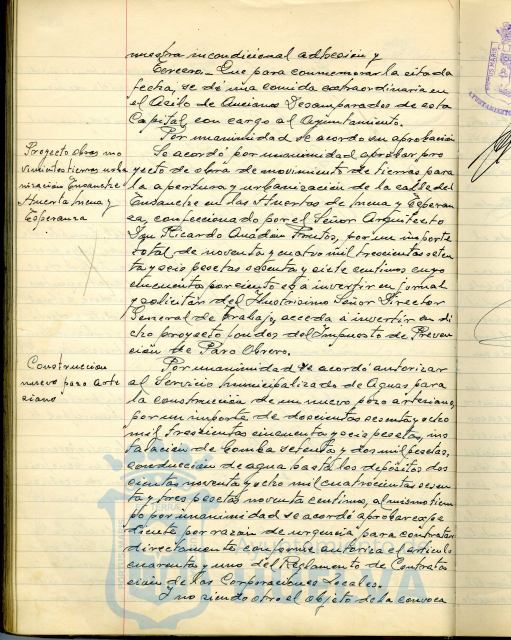 nuestra incondicional adhesión y
Tercero.- Que para conmemorar la citada
fecha, se dé una comida extraordinaria en
el Asilo de Ancianos Desamparados de esta
Capital, con cargo al Ayuntamiento.
Por unanimidad se acordó su aprobación
Proyecto obras mo
vimientos tierras urba
nización Ensanche
Huerta Mena y
Esperanza
Se acordó por unanimidad aprobar pro
yecto de obra de movimiento de tierras para
la apertura y urbanización de la calle del
Ensanche en las Huertas de Mena y Esperan
za, confeccionado por el Señor Arquitecto
Don Ricardo Anadón Frutos, por un importe
total de noventa y cuatro mil trescientas seten
ta y seis pesetas sesenta y siete centimos cuyo
cincuenta por ciento está invertir en jornal
y solicitar del Ilustrisimo Señor Director
General de Trabajo, acceda a invertir en di
cho proyecto fondos del Impuesto de Preven
ción de Paro Obrero.
Construcción
nuevo pozo arte
siano
Por unanimidad se acordó autorizar
al Servicio Municipalizado de Aguas para
la construcción de un nuevo pozo artesiano,
por un importe de doscientas sesenta y ocho
mil trescientas cincuenta y seis pesetas, ins
talación de bomba setenta y dos mil pesetas,
conducción de agua hasta los depósitos dos
cientas noventa y ocho mil cuatrocientas sesen
ta y tres pesetas noventa centimos, al mismo tiem
po por unanimidad se acordó aprobar expe
diente por razón de urgencia para contratar
directamente conforme autoriza el articulo
cuarenta y uno del Reglamento de Contrata
ción de las Corporaciones Locales.
Y no siendo otro el objeto de la convoca